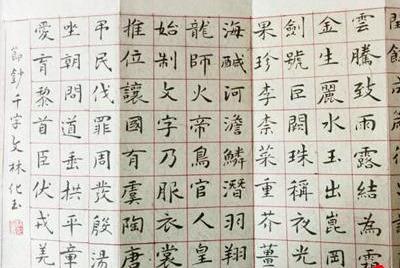 閏餘成
雲騰致雨露結為霜
金生麗水玉出崑岡
劍號巨闕珠稱夜光
果珍李柰菜重芥薑
海鹹河澹鱗潛羽翔
龍師火帝鳥官人皇
始制文字乃服衣裳
推位讓國有虞陶唐
吊民伐罪周發殷湯
坐朝問道垂拱平章
愛育黎首臣伏戎羌
節鈔千字文林化玉